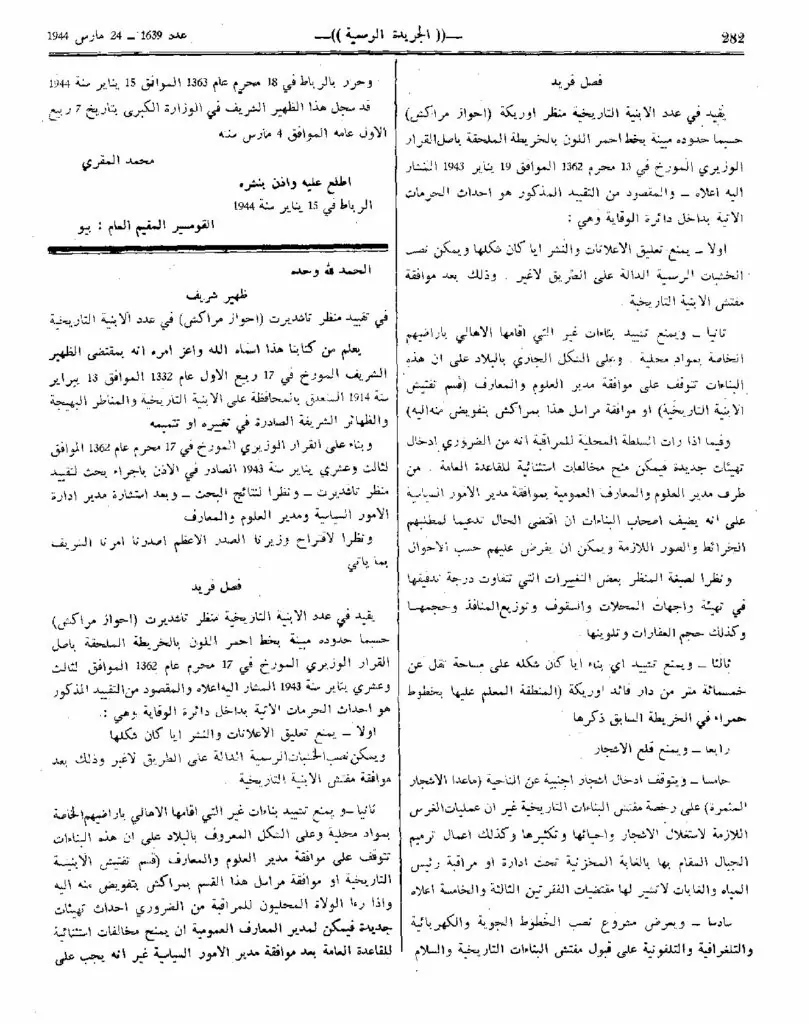 282
—(( الجريدة الرسمية ))—
عدد 1639 – 24 مارس 1944
فصل فريد
يقيد في عدد الابنية التاريخية منظر اوريكة (احواز مراكش)
حسبما حدوده مبينة بخط احمر اللون بالخريطة الملحقة باصل القرار
الوزيري المورخ في 13 محرم 1362 الموافق 19 يناير 1943 المشار
اليه اعلاه – والمقصود من التقييد المذكور هو احداث الحرمات
الاتية بداخل دائرة الوقاية وهي :
اولا – يمنع تعليق الاعلانات والنشر ايا كان شكلها ويمكن نصب
الخشبات الرسمية الدالة على الطريق لاغير . وذلك بعد موافقة
مفتش الابنية التاريخية .
ثانيا – ويمنع تشييد بناءات غير التي اقامها الاهالي باراضيهم
الخاصة بمواد محلية . وعلى الشكل الجاري بالبلاد على ان هذه
البناءات تتوقف على موافقة مدير العلوم والمعارف (قسم تفتيش
الابنية التاريخية) او موافقة مراسل هذا بمراكش بتفويض منه اليه)
وفيما اذا رات السلطة المحلية للمراقبة انه من الضروري ادخال
تهيئات جديدة فيمكن منح مخالفات استثنائية للقاعدة العامة . من
طرف مدير العلوم والمعارف العمومية بموافقة مدير الامور السياسية
على انه يضيف اصحاب البناءات ان اقتضى الحال تدعيما لمطلبهم
الخرائط والصور اللازمة ويمكن ان يفرض عليهم حسب الاحوال
ونظرا لصبغة المنظر بعض التغييرات التي تتفاوت درجة تدقيقها
في تهيئة واجهات المحلات والسقوف وتوزيع المنافذ وحجمها
وكذلك حجم العقارات وتلوينها .
ثالثا – ويمنع تشييد اي بناء ايا كان شكله على مساحة تقل عن
خمسمائة متر من دار قائد اوريكة (المنطقة المعلم عليها بخطوط
حمراء في الخريطة السابق ذكرها
رابعا – ويمنع قلع الاشجار
خامسا – ويتوقف ادخال اشجار اجنبية عن الناحية (ماعدا الاشجار
المثمرة) على رخصة مفتش البناءات التاريخية غير ان عمليات الغرس
اللازمة لاستغلال الاشجار واحيائها وتكثيرها وكذلك اعمال ترميم
الجبال المقام بها بالغابة المخزنية تحت ادارة او مراقبة رئيس
المياه والغابات لاتشير لها مقتضيات الفقرتين الثالثة والخامسة اعلاه
سادسا – ويعرض مشروع نصب الخطوط الجوية والكهربائية
والتلغرافية والتلفونية على قبول مفتش البناءات التاريخية والسلام
وحرر بالرباط في 18 محرم عام 1363 الموافق 15 يناير سنة 1944
قد سجل هذا الظهير الشريف في الوزارة الكبرى بتاريخ 7 ربيع
الاول عامه الموافق 4 مارس سنه
محمد المقري
اطلع عليه واذن بنشره
الرباط في 15 يناير سنة 1944
القومسير المقيم العام : بيو
الحمد لله وحده
ظهير شريف
في تقييد منظر تاشديرت (احواز مراكش) في عدد الابنية التاريخية
يعلم من كتابنا هذا اسماه الله واعز امره انه بمقتضى الظهير
الشريف المورخ في 17 ربيع الاول عام 1332 الموافق 13 يبراير
سنة 1914 المتعلق بالمحافظة على الابنية التاريخية والمناظر البهيجة
والظهائر الشريفة الصادرة في تغييره او تتميمه
وبناء على القرار الوزيري المورخ في 17 محرم عام 1362 الموافق
لثالث وعشري يناير سنة 1943 الصادر في الاذن باجراء بحث لتقييد
منظر تاشديرت – ونظرا لنتائج البحث – وبعد استشارة مدير ادارة
الامور السياسية ومدير العلوم والمعارف
ونظرا لاقتراح وزيرنا الصدر الاعظم اصدرنا امرنا الشريف
بما ياتي
فصل فريد
يقيد في عدد الابنية التاريخية منظر تاشديرت (احواز مراكش)
حسبما حدوده مبينة بخط احمر اللون بالخريطة الملحقة باصل
القرار الوزيري المورخ في 17 محرم عام 1362 الموافق لثالث
وعشري يناير سنة 1943 المشار اليه اعلاه والمقصود من التقييد المذكور
هو احداث الحرمات الاتية بداخل دائرة الوقاية وهي :
اولا – يمنع تعليق الاعلانات والنشر ايا كان شكلها
ويمكن نصب الخشبات الرسمية الدالة على الطريق لاغير وذلك بعد
موافقة مفتش الابنية التاريخية .
ثانيا – و يمنع تشييد بناءات غير التي اقامها الاهالي باراضيهم الخاصة
بمواد محلية وعلى الشكل المعروف بالبلاد على ان هذه البناءات
تتوقف على موافقة مدير العلوم والمعارف (قسم تفتيش الابنية
التاريخية او موافقة مراسل هذا القسم بمراكش بتفويض منه اليه
واذا رءا الولاة المحليون للمراقبة من الضروري احداث تهيئات
جديدة فيمكن لمدير المعارف العمومية ان يمنح مخالفات استثنائية
للقاعدة العامة بعد موافقة مدير الامور السياسية غير انه يجب على